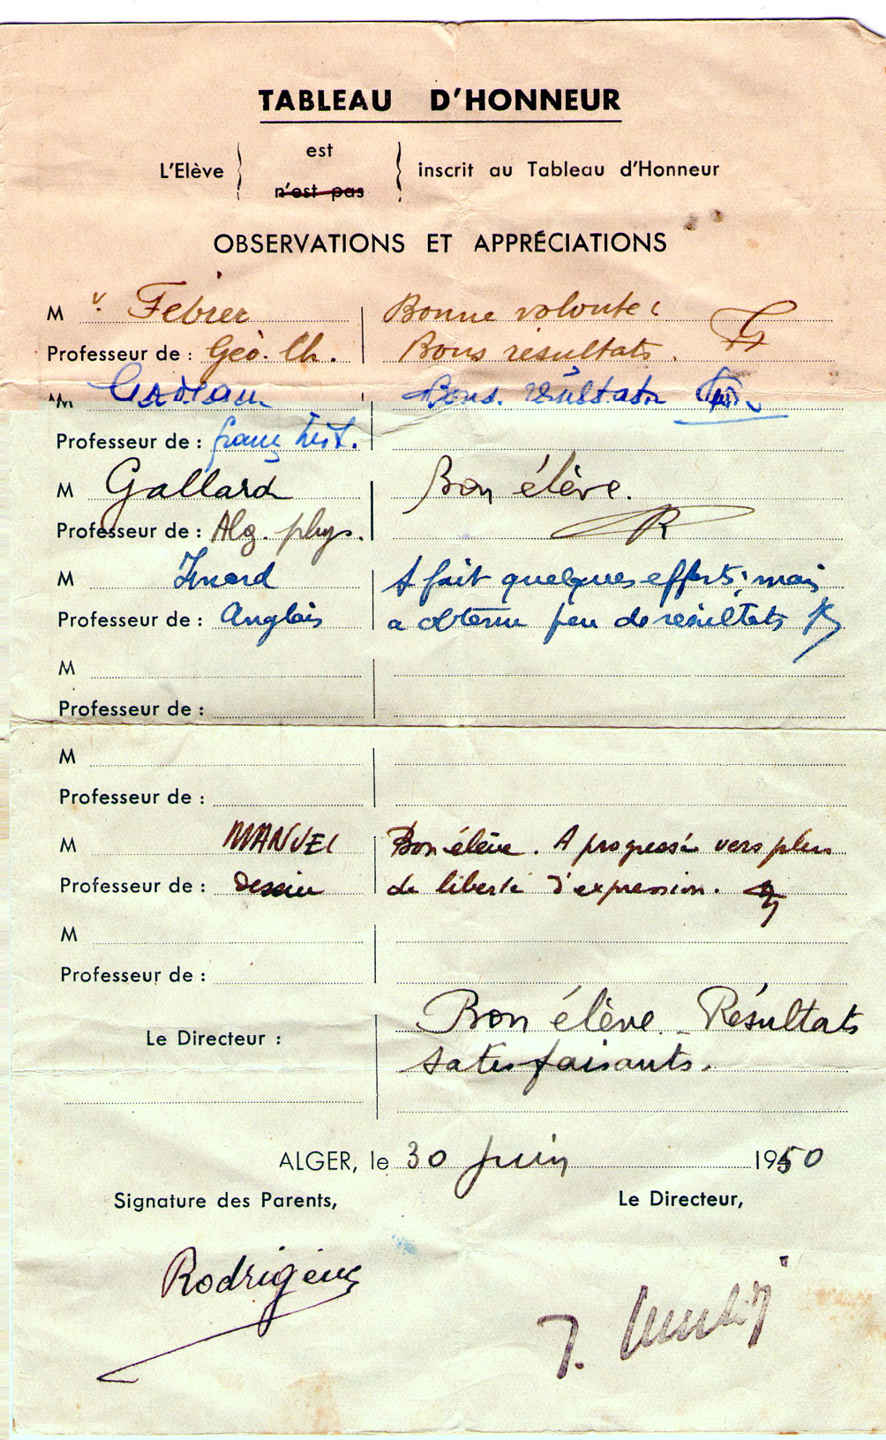 TABLEAU D'HONNEUR
L'Elève est n'est pas inscrit au Tableau d'Honneur
OBSERVATIONS ET APPRÉCIATIONS
M r Febrer Bonne volonté
Professeur de : Géo. Ch. Bons résultats.
M Bons résultats
Professeur de : hist.
M Gallard Bon élève.
Professeur de : Alg. phys.
M A fait quelques efforts, mais
Professeur de : Anglais a obtenu peu de résultats
M
Professeur de :
M
Professeur de :
M MANUEL Bon élève. A progressé vers plus
Professeur de : Dessin de liberté d'expression.
M
Professeur de :
Le Directeur : Bon élève. Résultats
satisfaisants.
ALGER, le 30 juin 1950
Signature des Parents, Le Directeur,